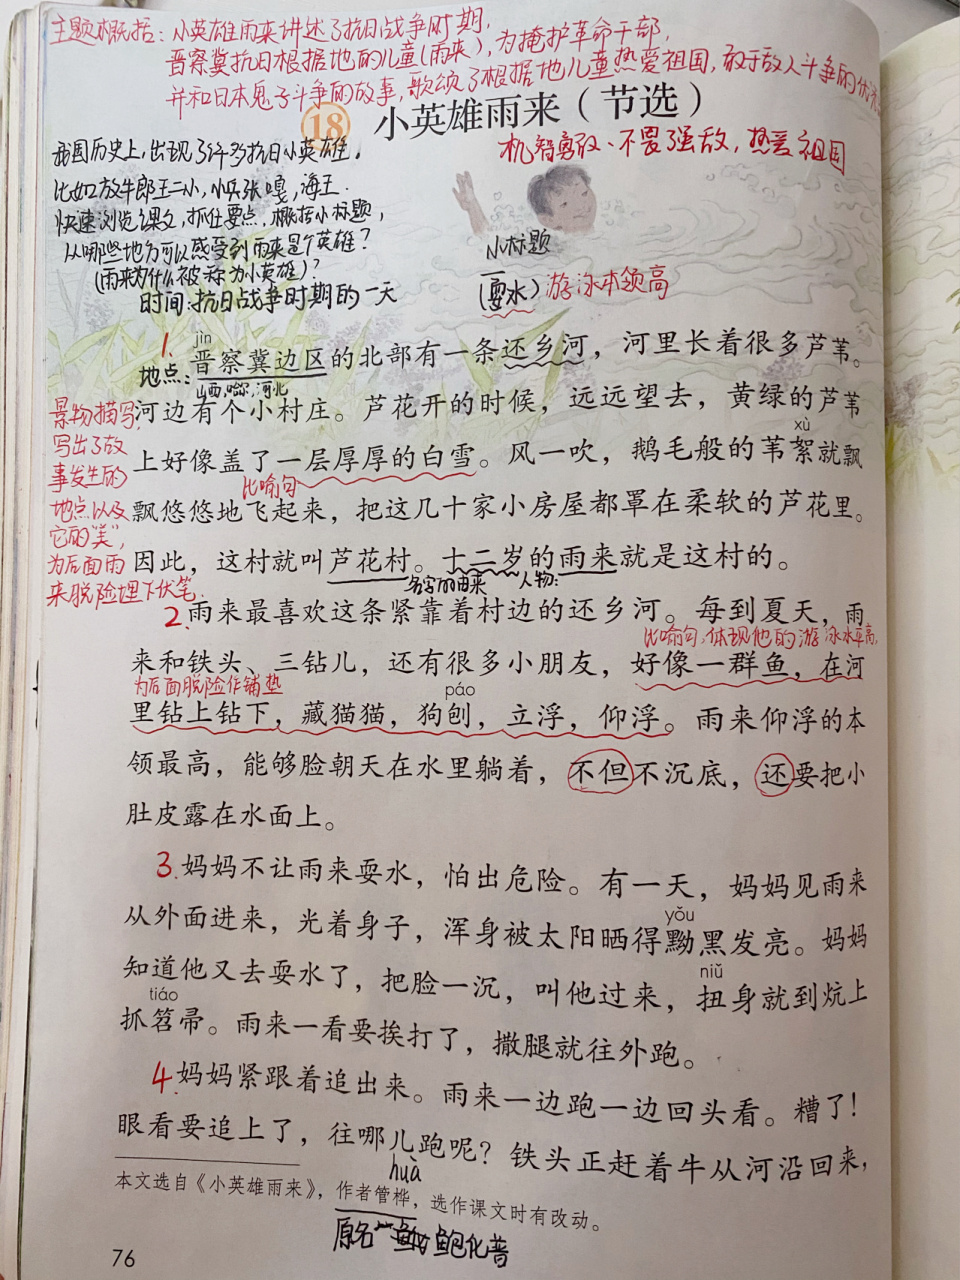 主题概括：小英雄雨来讲述了抗日战争时期，
晋察冀抗日根据地的儿童(雨来)，为掩护革命干部，
并和日本鬼子斗争的故事，歌颂了根据地儿童热爱祖国，敢于敌人斗争的
18 小英雄雨来（节选）
机智勇敢、不畏强敌，热爱祖国
我国历史上，出现了许多抗日小英雄。
比如放牛郎王二小，小兵张嘎，海娃.
快速浏览课文，抓住要点，概括小标题，
从哪些地方可以感受到雨来是个英雄？
(雨来为什么被称为小英雄)？
时间：抗日战争时期的一天
小标题
(耍水) 游泳本领高
jìn
1. 地点：晋察冀边区的北部有一条还乡河，河里长着很多芦苇。
山西，哈尔，河北
河边有个小村庄。芦花开的时候，远远望去，黄绿的芦苇
xù
上好像盖了一层厚厚的白雪。风一吹，鹅毛般的苇絮就飘
比喻句
飘悠悠地飞起来，把这几十家小房屋都罩在柔软的芦花里。
因此，这村就叫芦花村。十二岁的雨来就是这村的。
名字的由来 人物：
景物描写，
写出了故
事发生的
地点以及
它的"美"，
为后面雨
来脱险埋下伏笔.
2.雨来最喜欢这条紧靠着村边的还乡河。每到夏天，雨
比喻句，体现他的游泳水平高，
来和铁头、三钻儿，还有很多小朋友，好像一群鱼，在河
为后面脱险作铺垫
páo
里钻上钻下，藏猫猫，狗刨，立浮，仰浮。雨来仰浮的本
领最高，能够脸朝天在水里躺着，不但不沉底，还要把小
肚皮露在水面上。
3.妈妈不让雨来耍水，怕出危险。有一天，妈妈见雨来
从外面进来，光着身子，浑身被太阳晒得黝黑发亮。妈妈
yǒu
知道他又去耍水了，把脸一沉，叫他过来，扭身就到炕上
niǔ
tiáo
抓笤帚。雨来一看要挨打了，撒腿就往外跑。
4.妈妈紧跟着追出来。雨来一边跑一边回头看。糟了！
眼看要追上了，往哪儿跑呢？铁头正赶着牛从河沿回来，
huà
本文选自《小英雄雨来》，作者管桦，选作课文时有改动。
原名 鲍化普
76